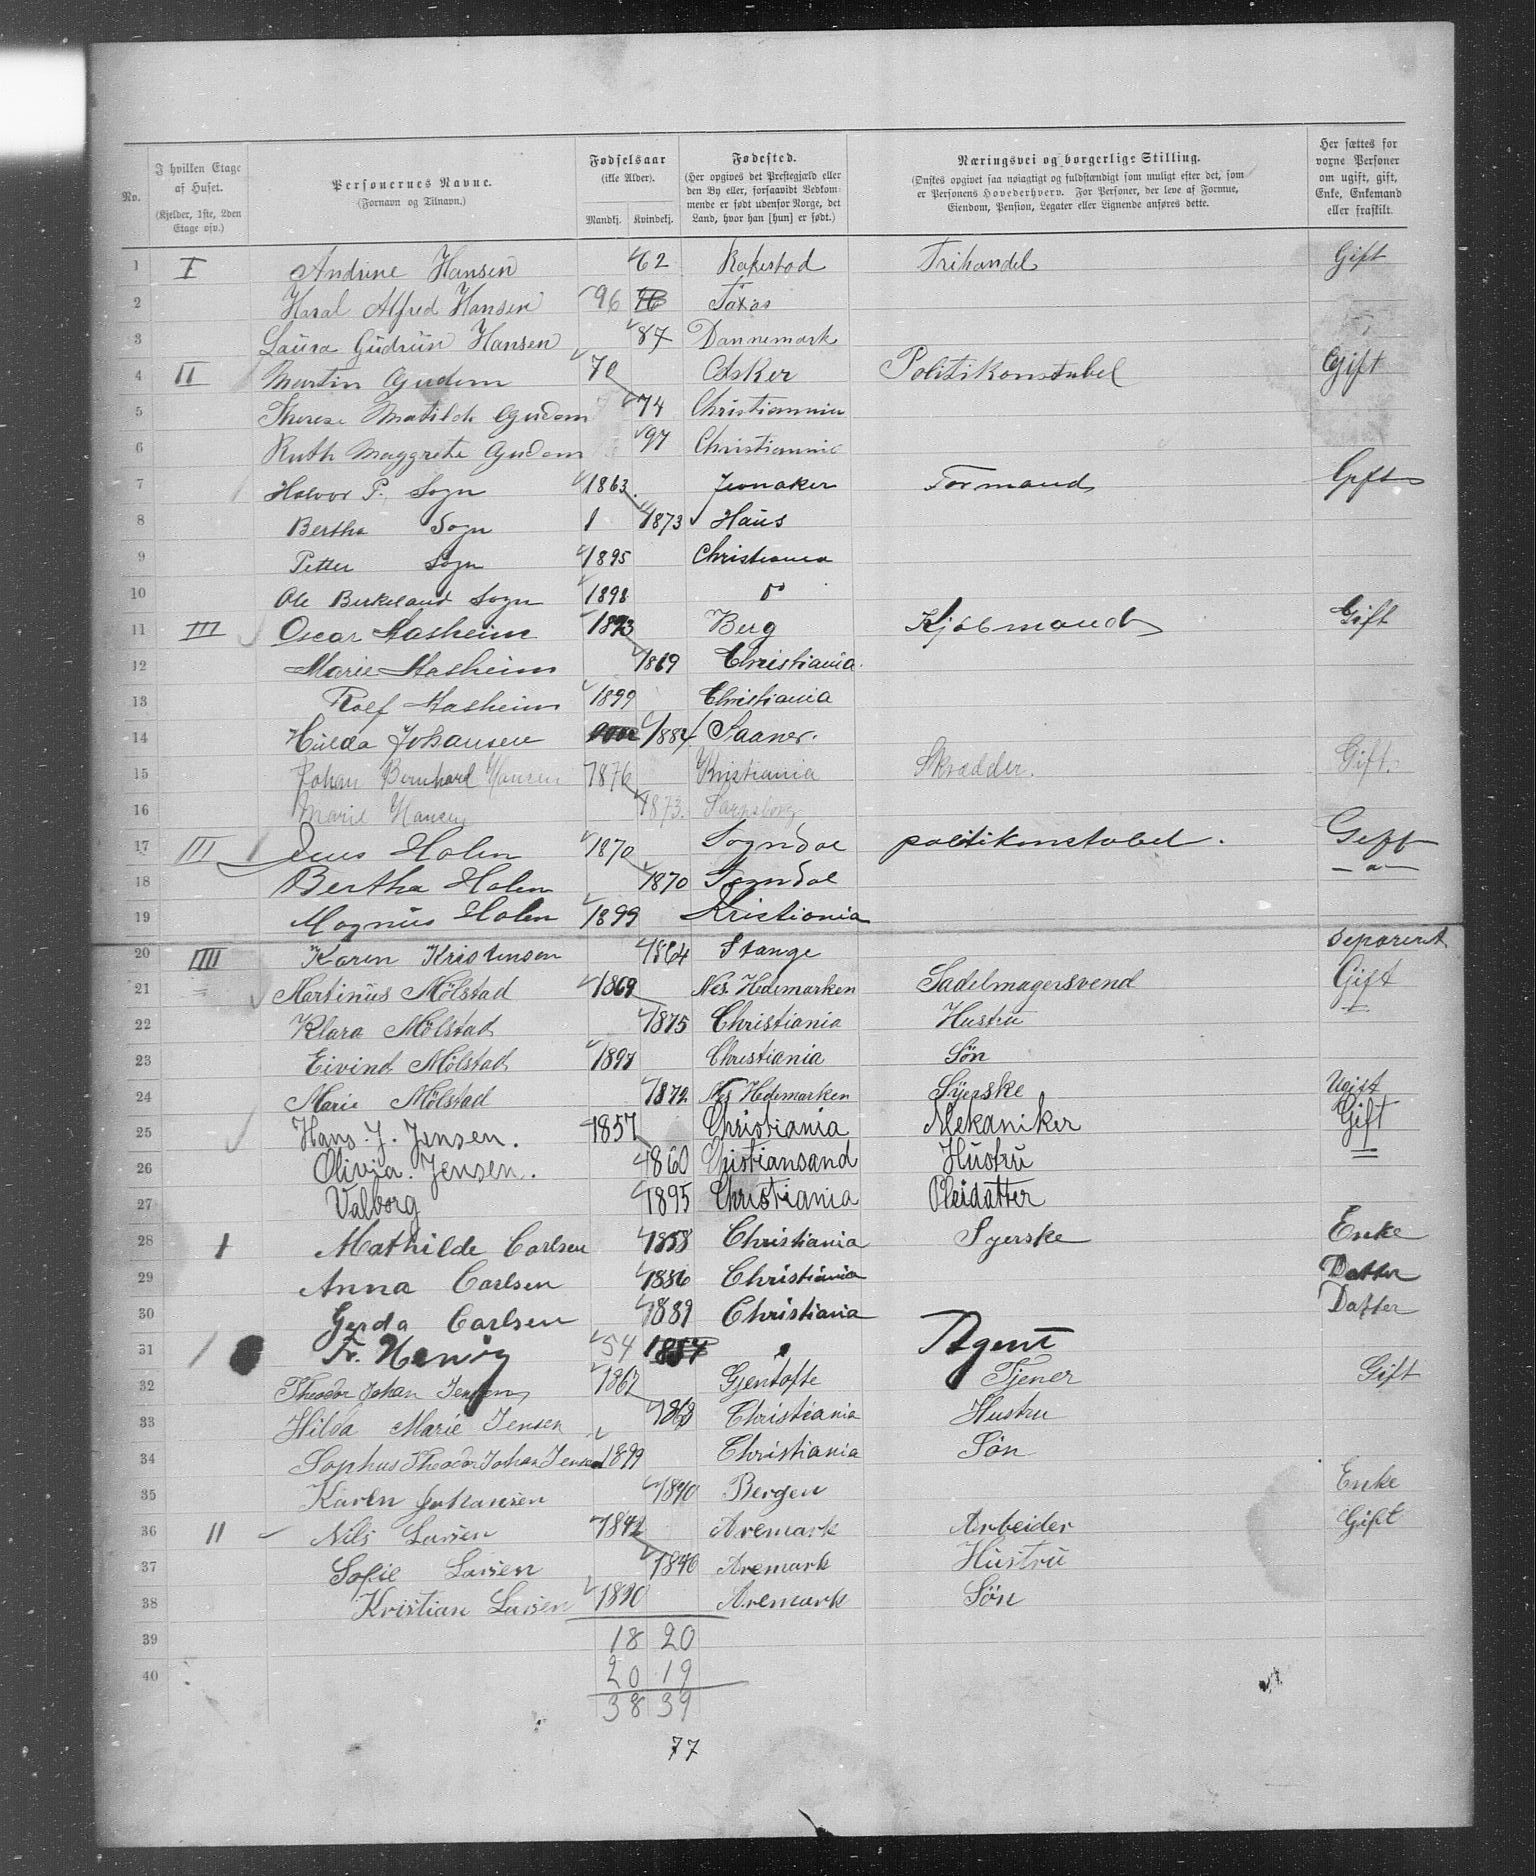 No. I hvilken Etage af Huset. (Kjelder, 1ste, 2den Etage osv.) Personernes Navne. (Fornavn og Tilnavn.) Fødselsaar (ikke Alder). Mandkj. Kvindekj. Fødested. (Her opgives det Præstegjæld eller den By eller, forsaavidt Vedkommende er født udenfor Norge, det Land, hvor han [hun] er født.) Næringsvei og borgerlige Stilling. (Ønskes opgivet saa nøiagtigt og fuldstændigt som muligt efter det, som er Personens Hovederhverv. For Personer, der leve af Formue, Eiendom, Pension, Legater eller Lignende anføres dette. Her sættes for voxne Personer om ugift, gift, Enke, Enkemand eller fraskilt.
1 I Andrine Hansen 62 Rakestad Frihandel Gift
2 Haral Alfred Hansen 96 Taxas
3 Laura Gudrun Hansen 87 Dannemark
4 II Martin Gudem 70 Asker Politikonstabel Gift
5 Therese Matilde Gudem 74 Christiannia
6 Ruth Maggrete Gudem 97 Christiannia
7 Halvor P. Sogn 1863 Jevnaker Formand Gift
8 Bertha Sogn 1 1873 Haus
9 Petter Sogn 1895 Christiania
10 Ole Birkeland Sogn 1898 do
11 III Oscar Aasheim 1873 Berg Kjøbmand Gift
12 Marie Aasheim 1869 Christiania
13 Rolf Aasheim 1899 Christiania
14 Hulda Johansen 1884 Saaner.
15 Johan Bernhard Hansen 1876 Kristiania Skrædder. Gift.
16 Marie Hansen 1873. Sarpsborg
17 III Jens Holen 1870 Sogndal politikonstabel. Gift
18 Bertha Holen 1870 Sogndal — " —
19 Magnus Holen 1899 Kristiania
20 IIII Karen Kristensen 1864 Stange Separeret
21 Martinus Mølstad 1869 Nes Hedemarken Sadelmagersvend Gift
22 Klara Mølstad 1875 Christiania Hustru
23 Eivind Mølstad 1897 Christiania Søn
24 Marie Mølstad 1872 Nes Hedemarken Syerske Ugift
25 Hans. J. Jensen. 1857 Christiania Mekaniker Gift
26 Olivia. Jensen. 1860 Christiansand Hustru
27 Valborg 1895 Christiania Pleidatter
28 1 Mathilde Carlsen 1858 Christiania Syerske Enke
29 Anna Carlsen 1886 Christiania Datter
30 Gerda Carlsen 1889 Christiania Datter
31 Fr. 54 1854 Agent
32 Theodor Johan Jensen 1867 Gjentofte Tjener Gift
33 Hilda Marie Jensen 1868 Christiania Hustru
34 Sophus Theodor Johan Jensen 1899 Christiania Søn
35 Karen Johansen 1840 Bergen Enke
36 11 Nils Larsen 1842 Aremark Arbeider Gift
37 Sofie Larsen 1840 Aremark Hustru
38 Kristian Larsen 1890 Aremark Søn
39 18 20
40 20 19
38 39
77